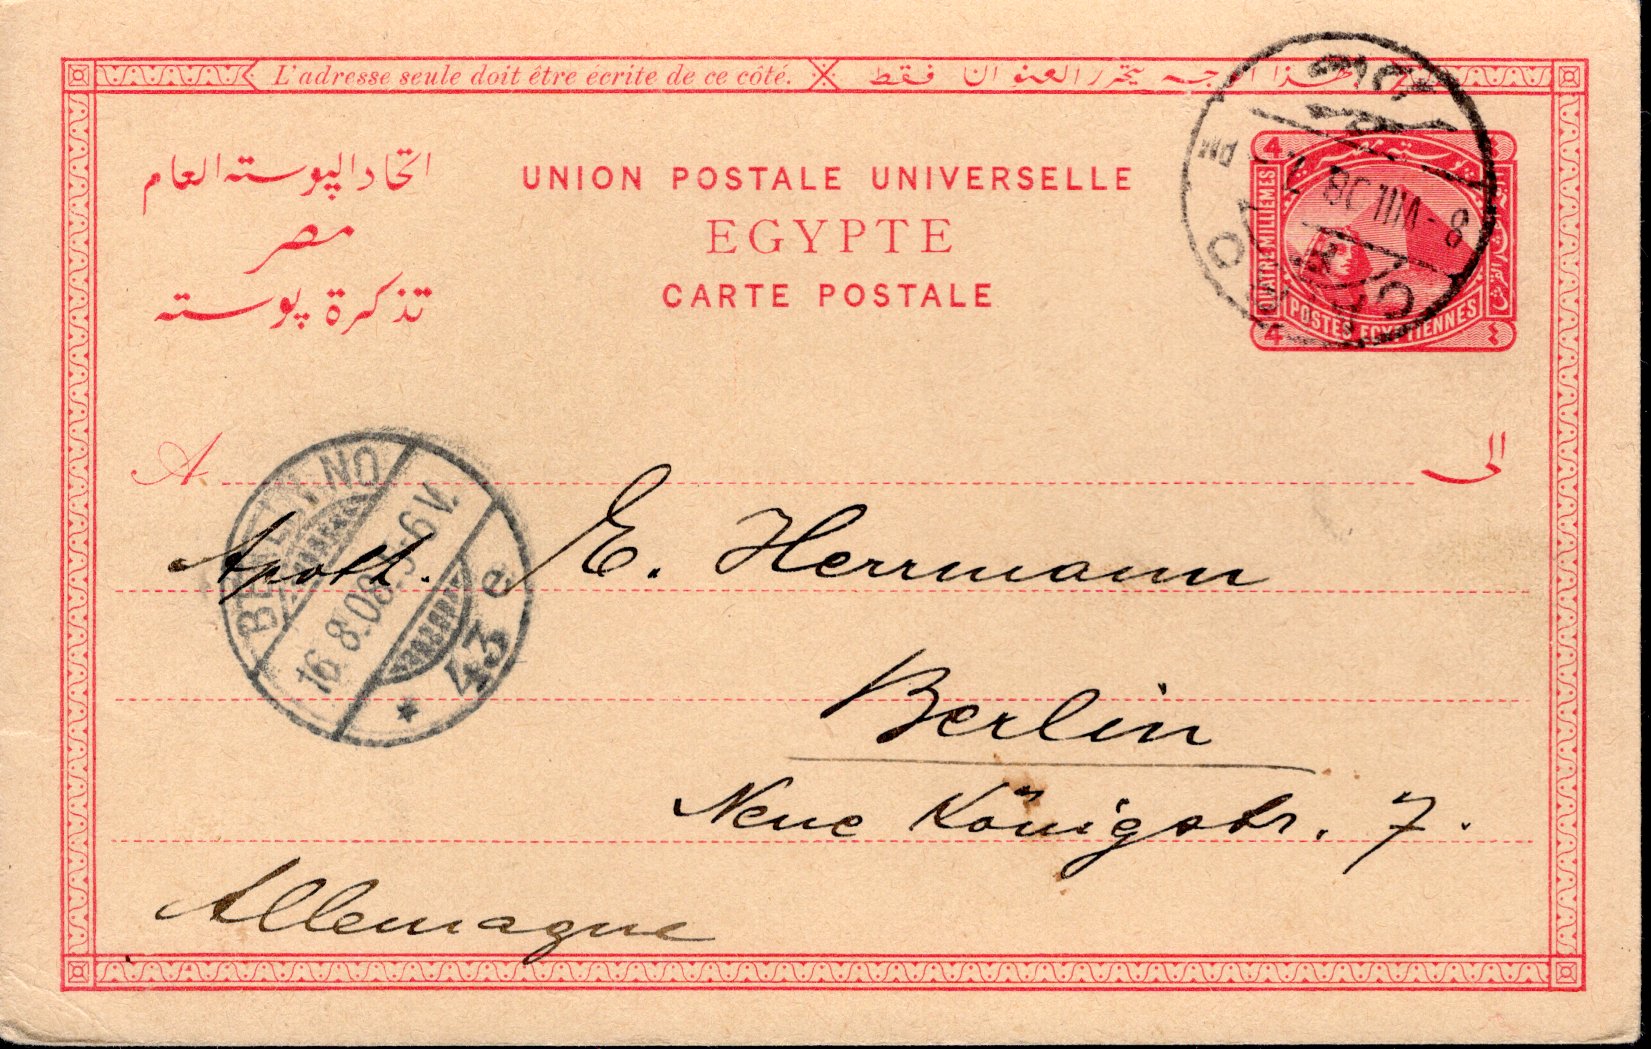 L'adresse seule doit être écrite de ce côté.
هذا الوجه يتحرر العنوان فقط
اتحاد البوسته العام
مصر
تذكرة بوسته
UNION POSTALE UNIVERSELLE
EGYPTE
CARTE POSTALE
4
QUATRE MILLIÈMES
POSTES EGYPTIENNES
4 ٤
CAIRO
8-VIII 08
PM
A
الى
BERLIN, NO
16.8.08. 5-6 V.
* 43 e
Apoth. E. Herrmann
Berlin
Neue Königstr. 7.
Allemagne